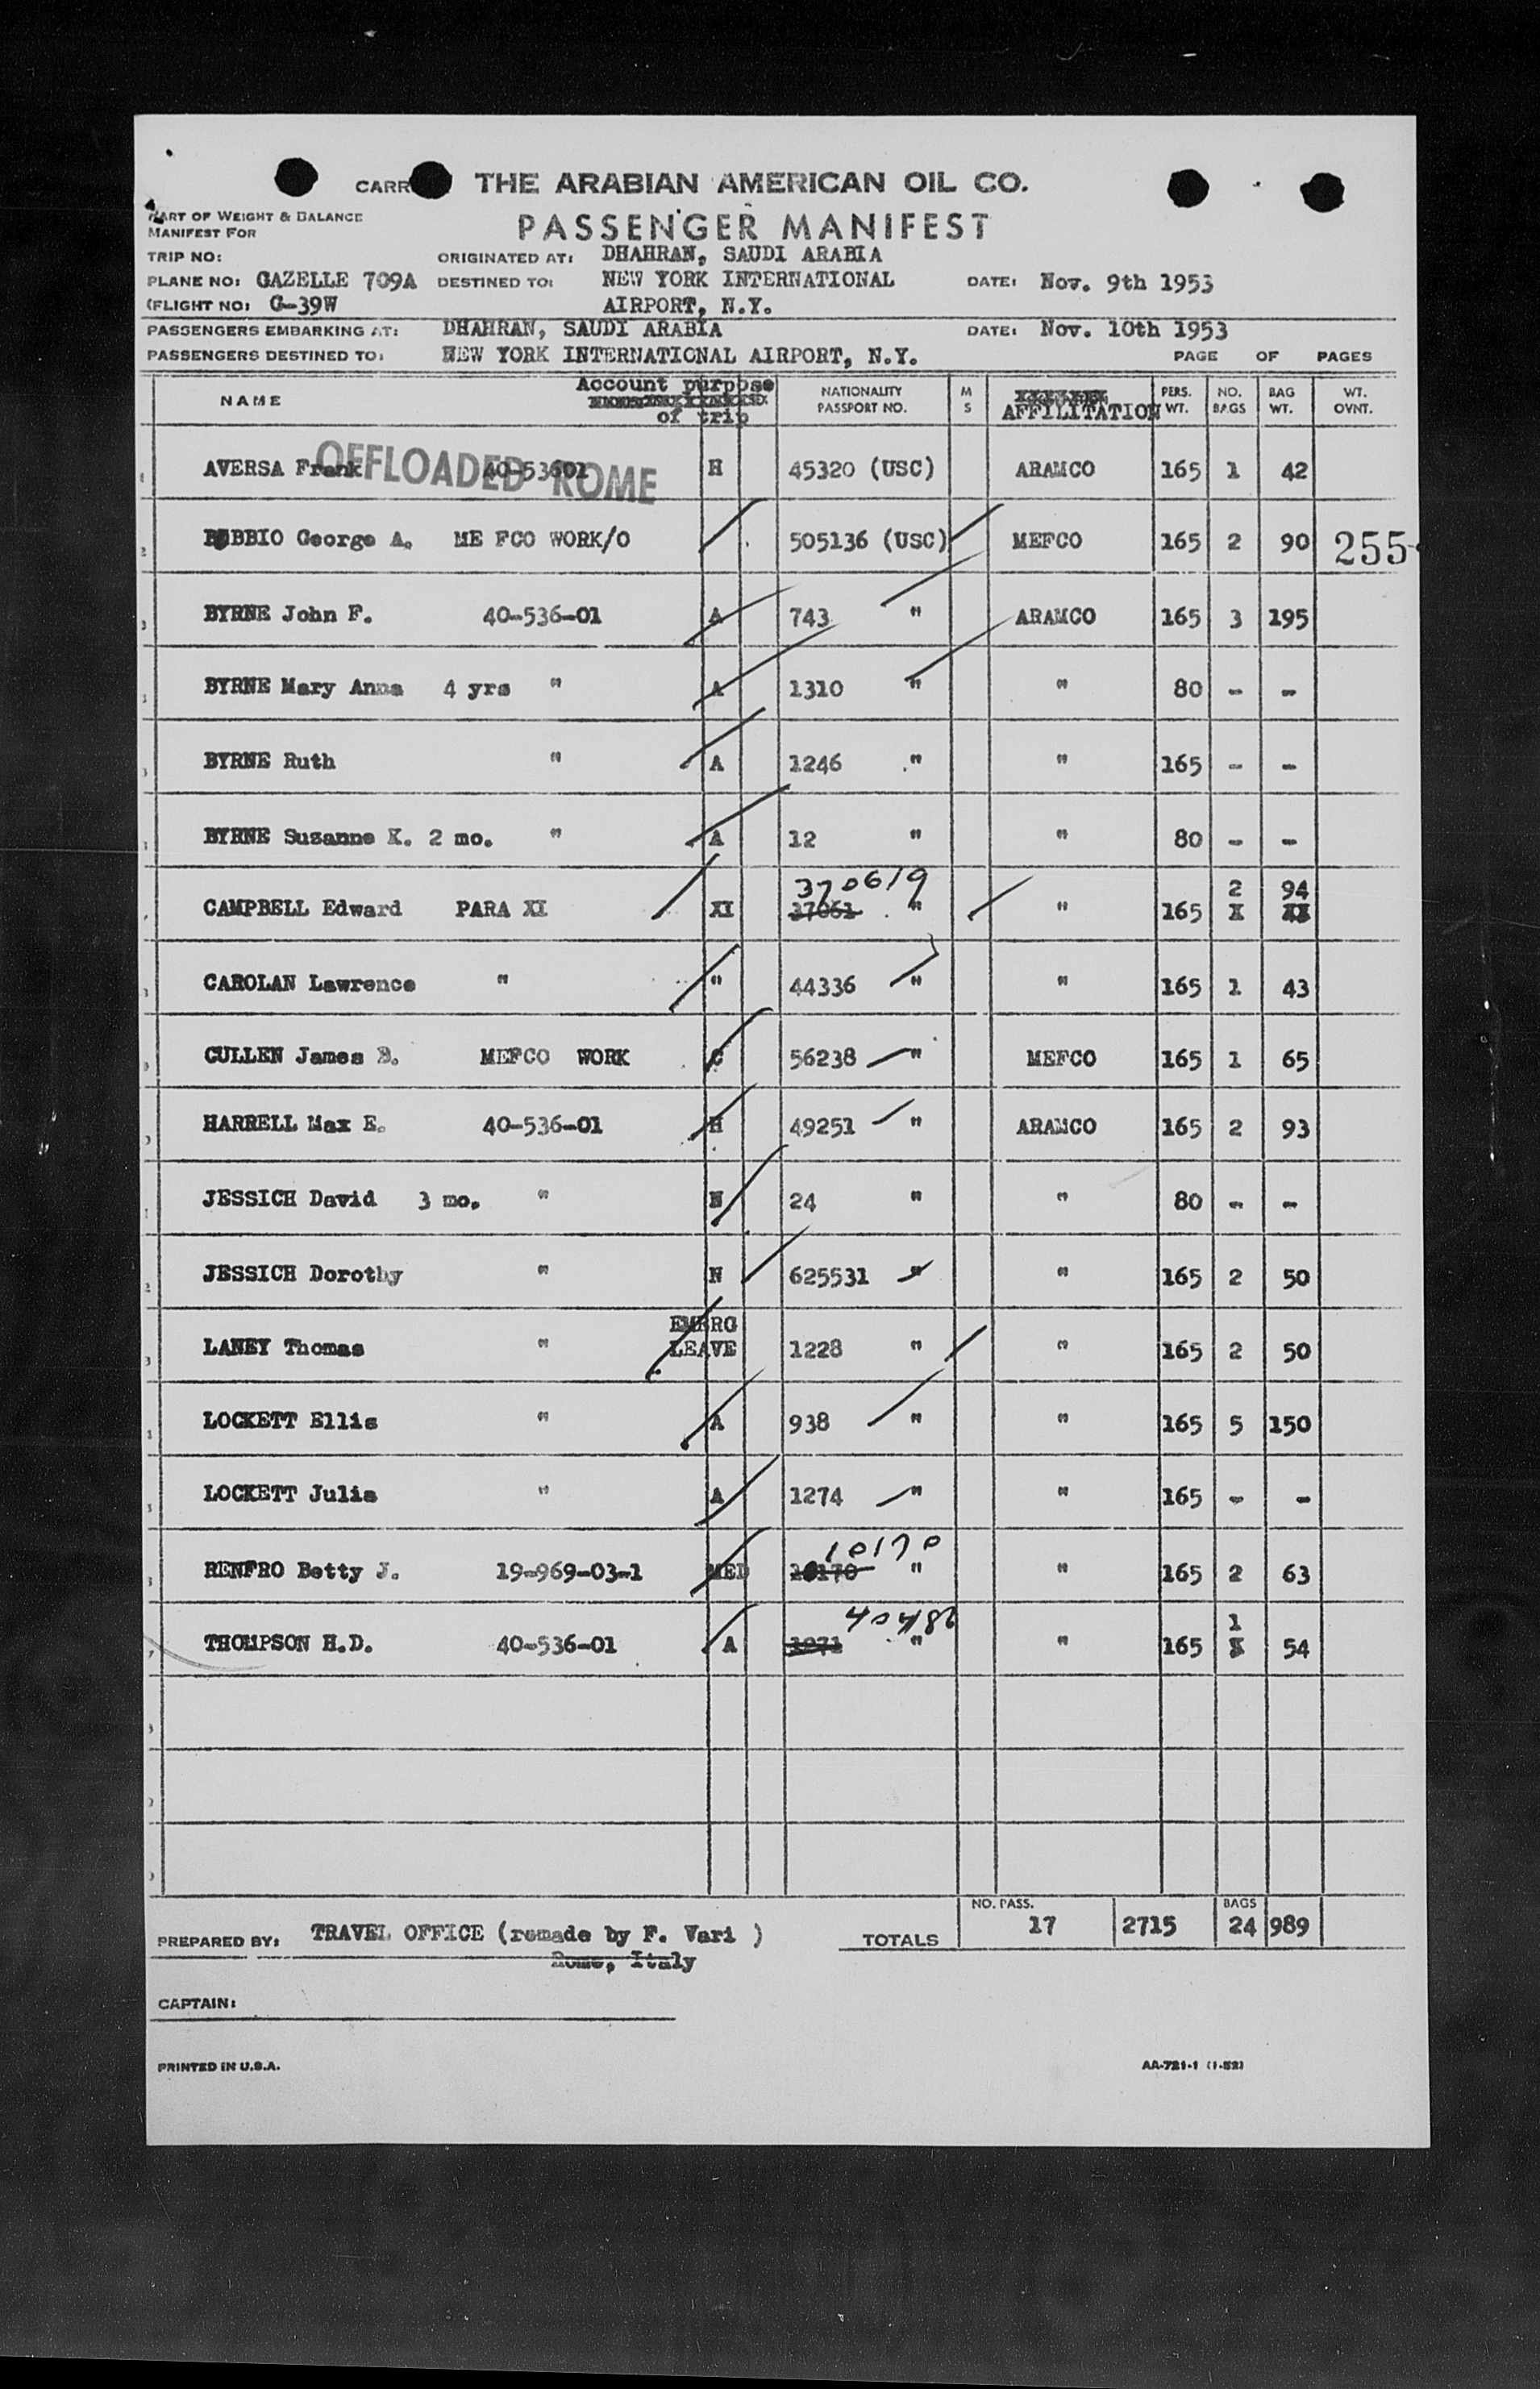 THE ARABIAN AMERICAN OIL CO.
PART OF WEIGHT & BALANCE
MANIFEST FOR
PASSENGER MANIFEST
TRIP NO: ORIGINATED AT: DHAHRAN, SAUDI ARABIA
PLANE NO: GAZELLE 709A DESTINED TO: NEW YORK INTERNATIONAL DATE: Nov. 9th 1953
(FLIGHT NO: G-39W AIRPORT, N.Y.
PASSENGERS EMBARKING AT: DHAHRAN, SAUDI ARABIA DATE: Nov. 10th 1953
PASSENGERS DESTINED TO: NEW YORK INTERNATIONAL AIRPORT, N.Y. PAGE OF PAGES
NAME Account purpose of trip NATIONALITY PASSPORT NO. M S AFFILITATION PERS. WT. NO. BAGS BAG WT. WT. OVNT.
AVERSA Frank 40-53601 H 45320 (USC) ARAMCO 165 1 42
OFFLOADED ROME
BUBBIO George A. ME FCO WORK/O 505136 (USC) MEFCO 165 2 90 255
BYRNE John F. 40-536-01 A 743 " ARAMCO 165 3 195
BYRNE Mary Anna 4 yrs " A 1310 " " 80 - -
BYRNE Ruth " A 1246 " " 165 - -
BYRNE Suzanne K. 2 mo. " A 12 " " 80 - -
370619 2 94
CAMPBELL Edward PARA XI XI 37061 " " 165
CAROLAN Lawrence " " 44336 " " 165 1 43
CULLEN James B. MEFCO WORK C 56238 " MEFCO 165 1 65
HARRELL Max E. 40-536-01 H 49251 " ARAMCO 165 2 93
JESSICH David 3 mo. " N 24 " " 80 - -
JESSICH Dorothy " N 625531 " " 165 2 50
EMERG
LANEY Thomas " LEAVE 1228 " " 165 2 50
LOCKETT Ellis " A 938 " " 165 5 150
LOCKETT Julia " A 1274 " " 165 - -
10170
RENFRO Betty J. 19-969-03-1 MED " " 165 2 63
40486 1
THOMPSON H.D. 40-536-01 A 1071 " " 165 54
NO. PASS. BAGS
PREPARED BY: TRAVEL OFFICE (remade by F. Vari ) TOTALS 17 2715 24 989
Rome, Italy
CAPTAIN:
PRINTED IN U.S.A. AA-721-1 (1-52)